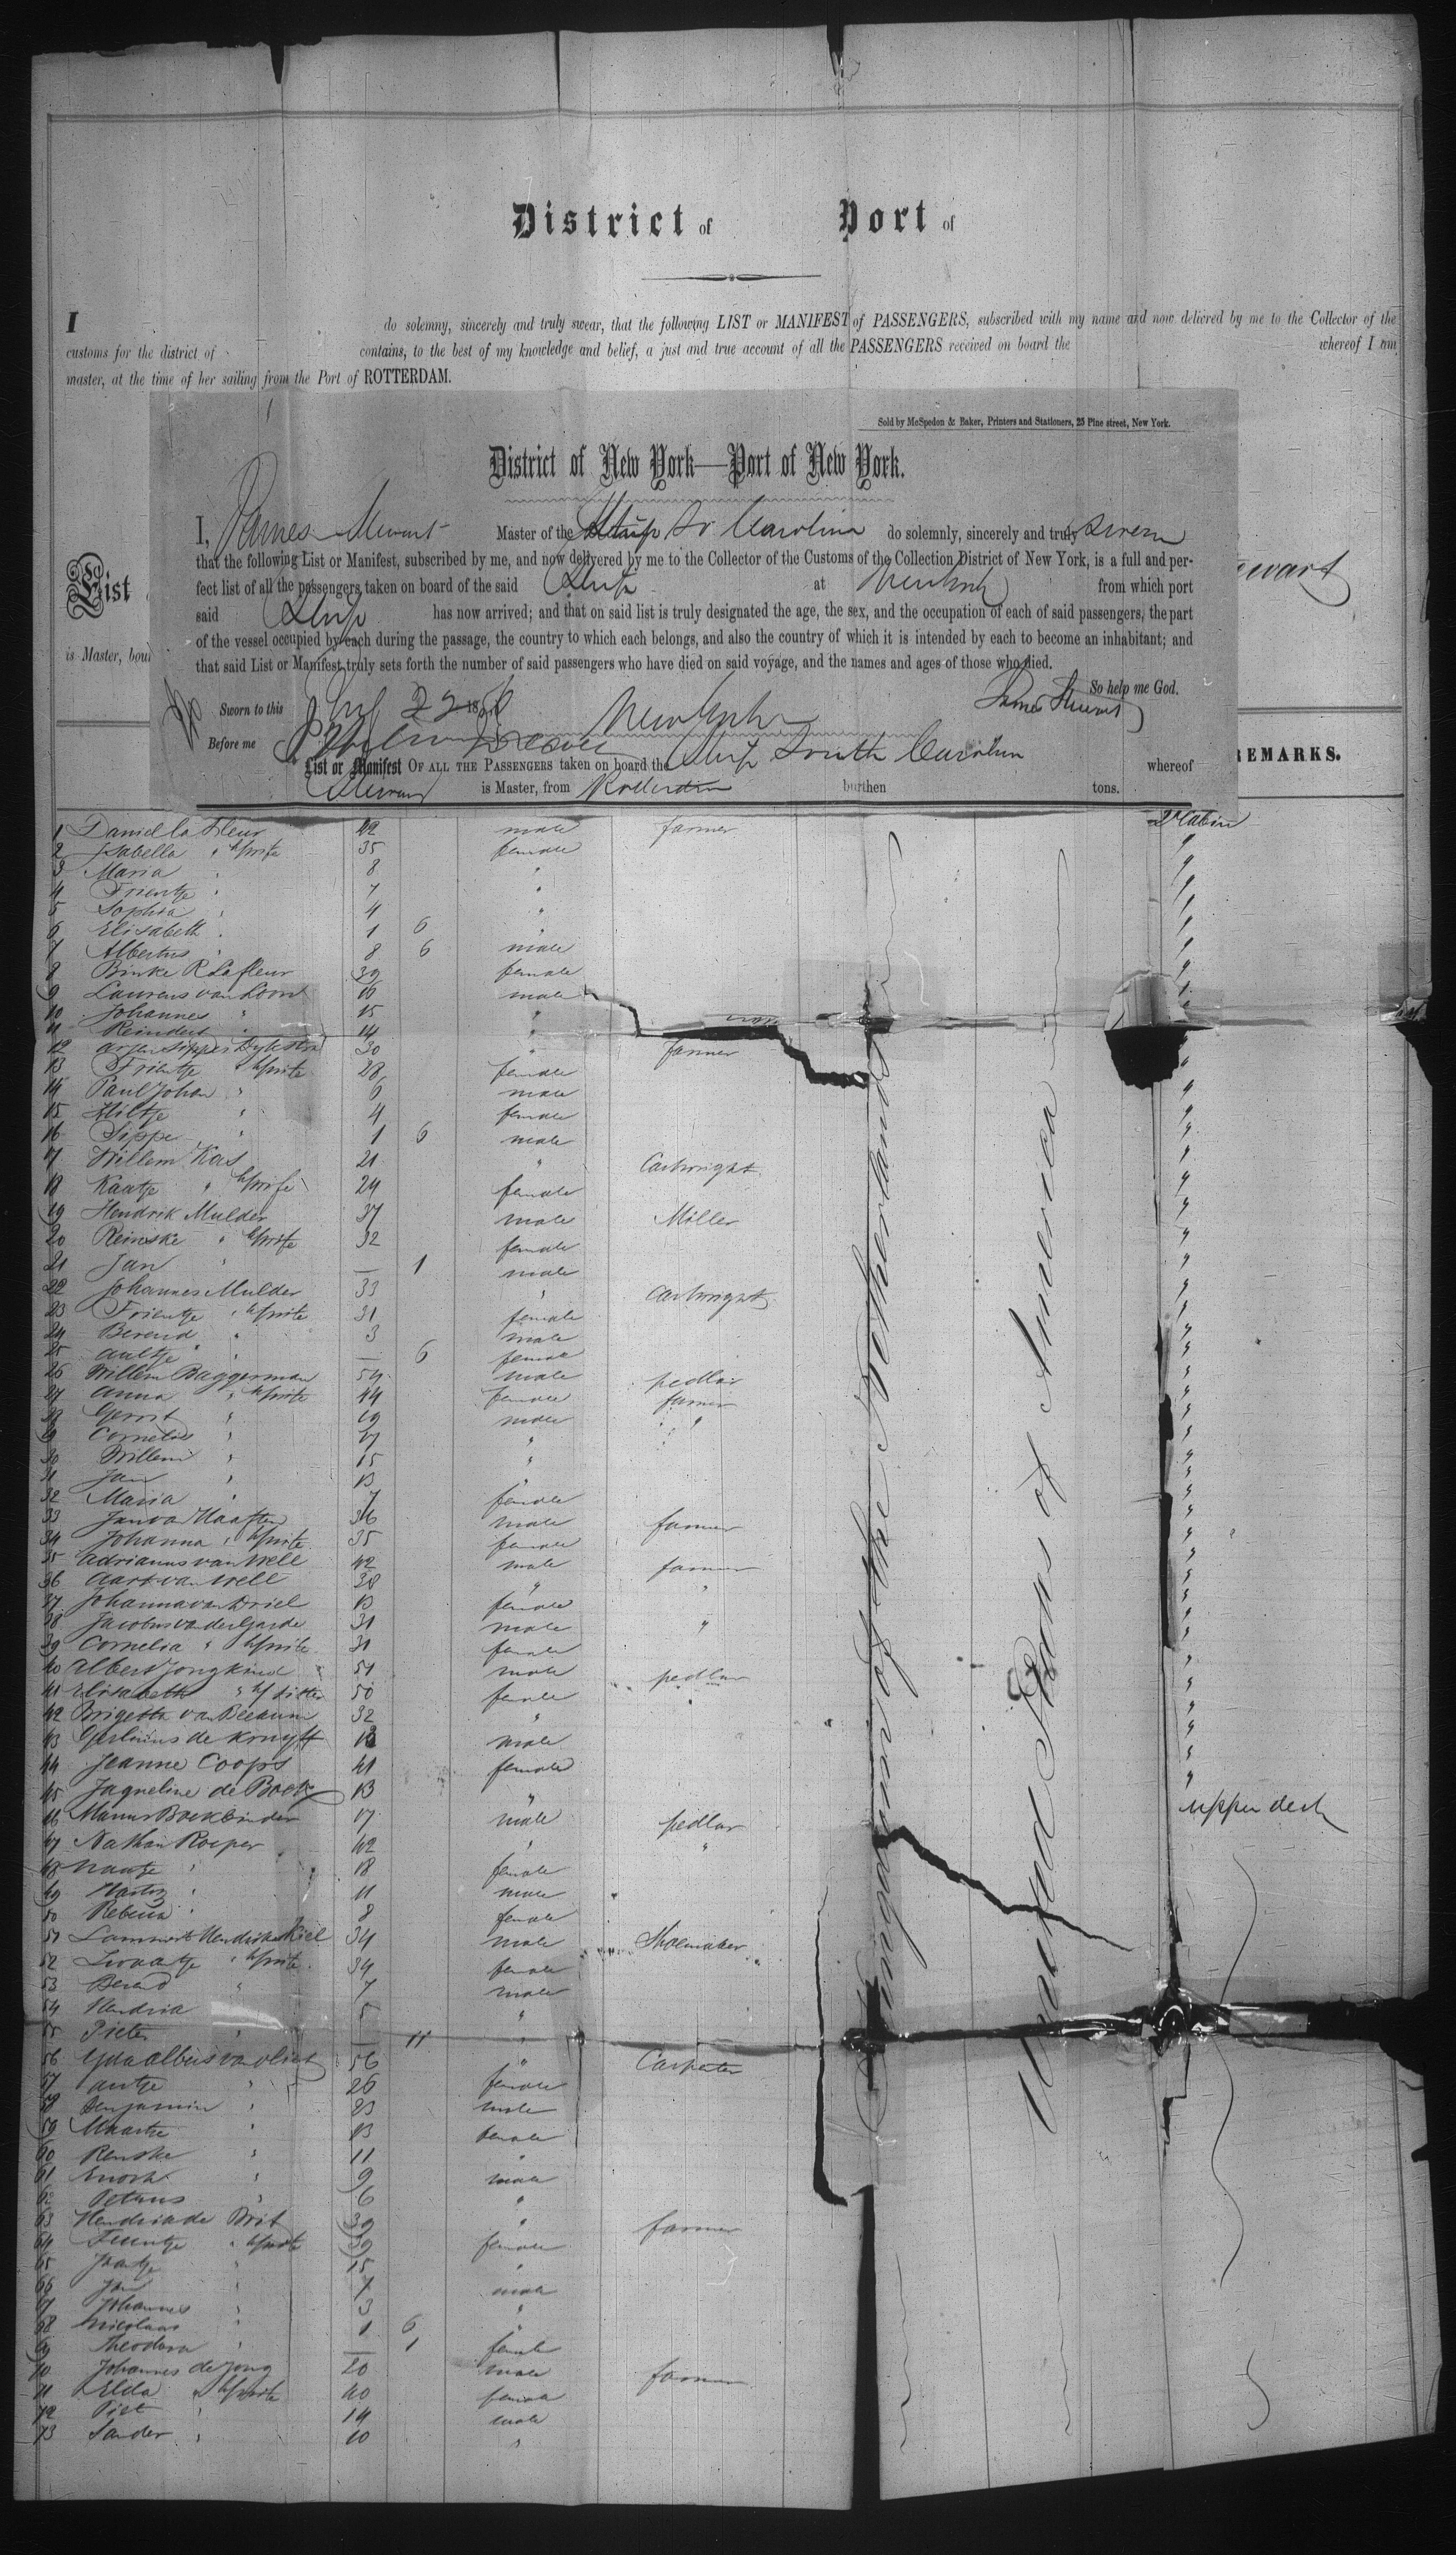 District of Port of
I do solemny, sincerely and truly swear, that the following LIST or MANIFEST of PASSENGERS, subscribed with my name and now delivred by me to the Collector of the
customs for the district of contains, to the best of my knowledge and belief, a just and true account of all the PASSENGERS received on board the whereof I am
master, at the time of her sailing from the Port of ROTTERDAM.
Sold by McSpedon & Baker, Printers and Stationers, 25 Pine street, New York.
District of New York—Port of New York.
I, James Stewart Master of the Ship So Carolina do solemnly, sincerely and truly swear
that the following List or Manifest, subscribed by me, and now delivered by me to the Collector of the Customs of the Collection District of New York, is a full and per-
fect list of all the passengers taken on board of the said Ship at from which port
said Ship has now arrived; and that on said list is truly designated the age, the sex, and the occupation of each of said passengers, the part
of the vessel occupied by each during the passage, the country to which each belongs, and also the country of which it is intended by each to become an inhabitant; and
that said List or Manifest truly sets forth the number of said passengers who have died on said voyage, and the names and ages of those who died.
So help me God.
Sworn to this 22 18 James Stewart
Before me New York
List or Manifest OF ALL THE PASSENGERS taken on board the Ship South Carolina whereof
Stewart is Master, from Rotterdam burthen tons.
List
ewart
is Master, boun
REMARKS.
1 Daniel la Fleur 42 male farmer 2d Cabin
2 Isabella " wife 35 female "
3 Maria " 8 " "
4 Trientje " 7 " "
5 Sophia " 4 " "
6 Elisabeth " 1 6 " "
7 Albertus " 8 6 male "
8 Binke R Lafleur 39 female "
9 Laurens van Loon 16 male "
10 Johannes " 15 "
11 Reindert " 14 "
12 Arjen Sippes Dykstra 30 " farmer
13 Trientje " wife 28 female "
14 Paul Johan " 6 male "
15 Hiltje " 4 female "
16 Sippe " 1 6 male "
17 Willem Kas 21 " Cartwright "
18 Kaatje " wife 24 female "
19 Hendrik Mulder 37 male Miller "
20 Reinske " wife 32 female "
21 Jan " — 1 male "
22 Johannes Mulder 33 " Cartwright "
23 Trientje " wife 31 female "
24 Berend " 3 male "
25 Aaltje " — 6 female "
26 Willem Baggerman 54 male pedlar "
27 Anna " wife 44 female farmer "
28 Gerrit " 19 male " "
29 Cornelis " 17 " "
30 Willem " 15 " "
31 Jan " 13 " "
32 Maria " 7 female "
33 Jan van Haaften 36 male farmer "
34 Johanna " wife 35 female "
35 Adrianus van Well 42 male farmer "
36 Aart van Well 38 " " "
37 Johanna van Driel 13 female "
38 Jacobus van der Garde 31 male " "
39 Cornelia " wife 31 female "
40 Albert Jongkind 51 male pedlar "
41 Elisabeth " sister 50 female "
42 Brigetta van Beekum 32 " "
43 de Kruyff 13 male "
44 Jeanne Coops 41 female "
45 Jaqueline de Boek 13 " "
46 Manus Boekbinder 17 male pedlar upper deck
47 Nathan Roeper 42 " "
48 Naatje " 18 female
49 Hartog " 11 male
50 Rebecca " 8 female
51 Lammert Hendriks Kiel 34 male Shoemaker
52 " wife 34 female
53 Berend " 7 male
54 Hendrik 5 "
55 Pieter " — 11 "
56 Yda Albers van Vliet 56 " Carpenter
57 Antje " 26 female
58 Benjamin " 23 male
59 Maartje " 13 female
60 Renske " 11 "
61 Enoch " 9 male
62 Petrus " 6 "
63 Hendrik de Brit 39 " farmer
64 " wife 39 female
65 Jantje " 15 "
66 Jan " 7 male
67 Johannes " 3 "
68 Nicolaas " 1 6 "
69 Theodora " — 1 female
70 Johannes de Jong 20 male farmer
71 Elda " wife 40 female
72 Piet " 14 male
73 Sander " 10 "
Kingdom of the Netherlands
United States of America